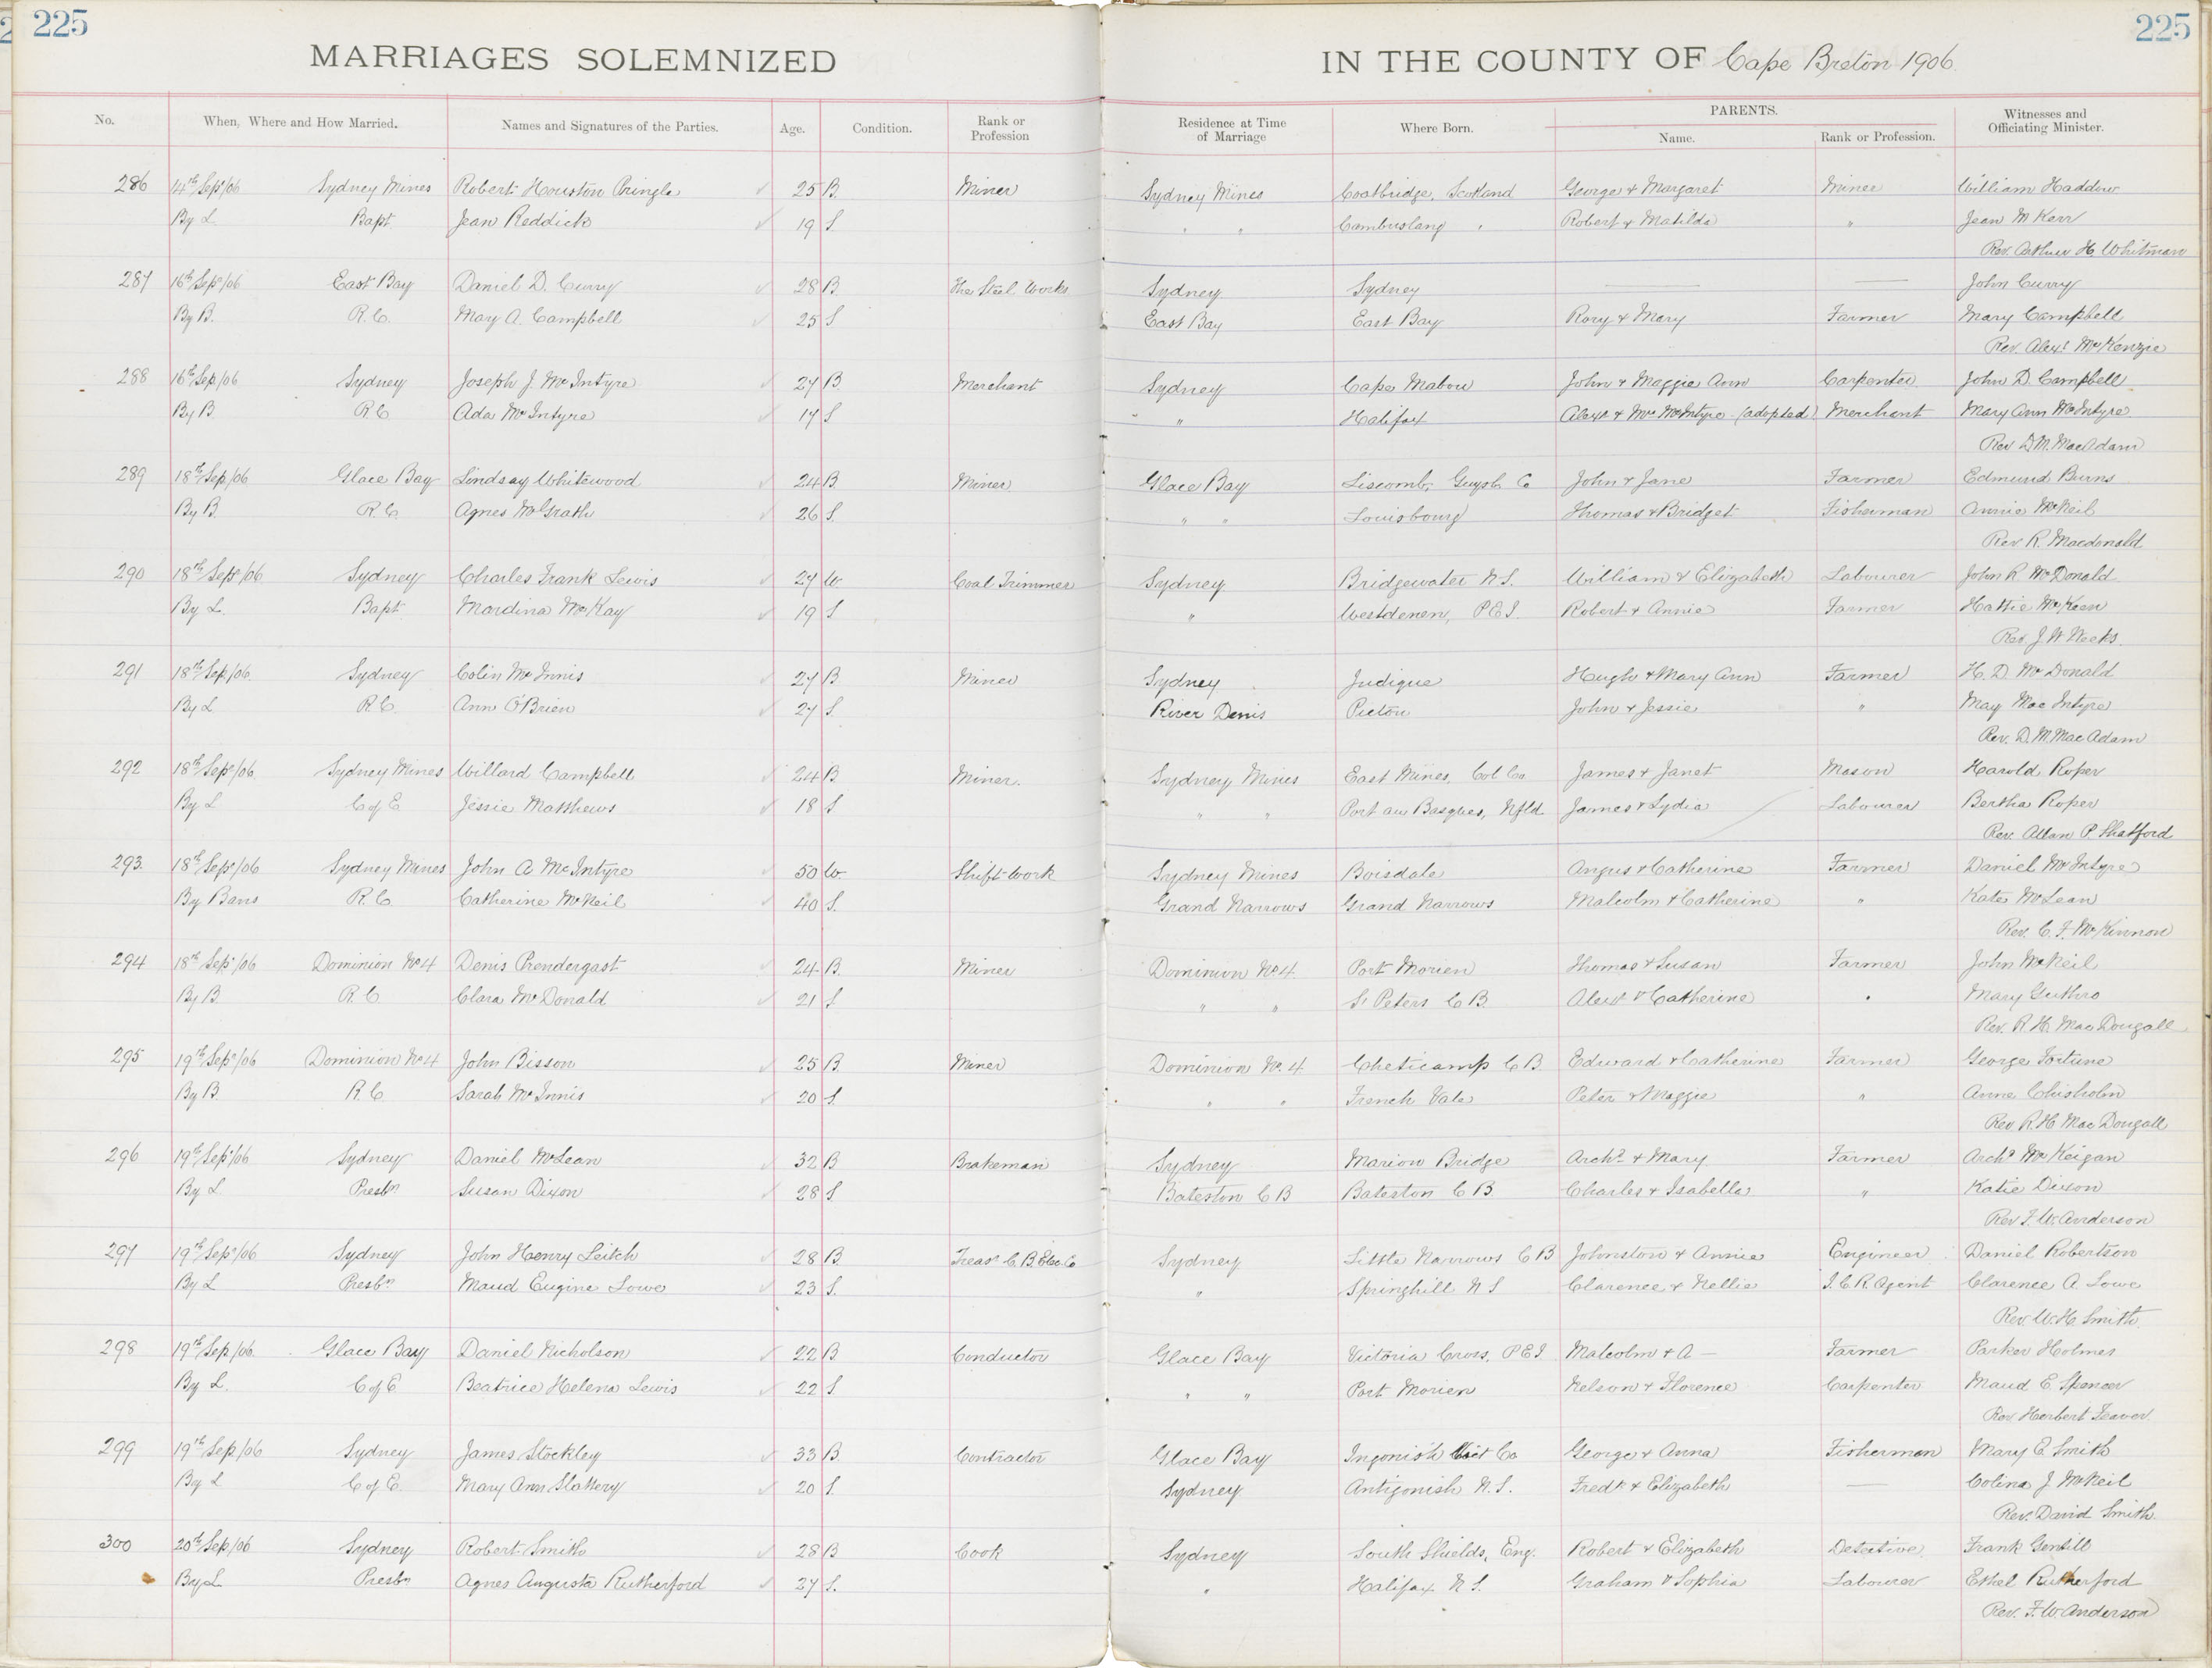 225 225
MARRIAGES SOLEMNIZED IN THE COUNTY OF Cape Breton 1906.
No. When, Where and How Married. Names and Signatures of the Parties. Age. Condition. Rank or Profession Residence at Time of Marriage Where Born. PARENTS. Name. Rank or Profession. Witnesses and Officiating Minister.
286 14th Sep/06 Sydney Mines Robert Houston Pringle 25 B. Miner Sydney Mines Coatbridge, Scotland George & Margaret Miner William Haddow
By L. Bapt. Jean Reddick 19 S. " " Cambuslang " Robert & Matilda " Jean M Kerr
Rev. Arthur H. Whitman
287 16th Sep/06 East Bay Daniel D. Curry 28 B. The Steel Works Sydney Sydney — — John Curry
By B. R.C. Mary A. Campbell 25 S East Bay East Bay Rory & Mary Farmer Mary Campbell
Rev. Alexr McKenzie
288 16th Sep/06 Sydney Joseph J. McIntyre 27 B Merchant Sydney Cape Mabou John & Maggie Ann Carpenter John D. Campbell
By B. R C Ada McIntyre 17 S " Halifax Alexr & Mrs McIntyre (adopted) Merchant Mary Ann McIntyre
Rev D. M. MacAdam
289 18th Sep/06 Glace Bay Lindsay Whitewood 24 B. Miner Glace Bay Liscomb, Guysb. Co John & Jane Farmer Edmund Burns
By B. R.C. Agnes McGrath 26 S. " " Louisbourg Thomas & Bridget Fisherman Annie McNeil
Rev R. Macdonald
290 18th Sep/06 Sydney Charles Frank Lewis 27 W Coal Trimmer Sydney Bridgewater N.S. William & Elizabeth Labourer John R McDonald
By L. Bapt Mardina McKay 19 S " P.E.I. Robert & Annie Farmer Hattie McKeen
Rev. J. W Weeks.
291 18th Sep/06 Sydney Colin McInnis 27 B Miner Sydney Judique Hugh & Mary Ann Farmer H. D. McDonald
By L R.C. Ann O'Brien 27 S. River Denis Pictou John & Jessie " May MacIntyre
Rev. D. M. MacAdam
292 18th Sep/06 Sydney Mines Willard Campbell 24 B Miner. Sydney Mines East Mines, Col Co. James & Janet Mason Harold Roper
By L C of E Jessie Matthews 18 S " " Port au Basques, Nfld. James & Lydia Labourer Bertha Roper
Rev. Allan P. Shatford
293 18th Sep/06 Sydney Mines John A McIntyre 50 W Shift-work Sydney Mines Boisdale Angus & Catherine Farmer Daniel McIntyre
By Bans R.C. Catherine McNeil 40 S. Grand Narrows Grand Narrows Malcolm & Catherine " Kate McLean
Rev. C. F. McKinnon
294 18th Sep/06 Dominion No 4 Denis Prendergast 24 B. Miner Dominion No 4. Port Morien Thomas & Susan Farmer John McNeil
By B. R. C Clara McDonald 21 S " " St Peters C B. Alexr & Catherine " Mary Guthro
Rev. R. H. MacDougall
295 19th Sep/06 Dominion No 4 John Bisson 25 B. Miner Dominion No. 4 Cheticamp C B. Edward & Catherine Farmer George Fortune
By B. R. C Sarah McInnis 20 S. " " French Vale Peter & Maggie " Anne Chisholm
Rev. R. H MacDougall
296 19th Sep/06 Sydney Daniel McLean 32 B Brakeman Sydney Marion Bridge Archd & Mary Farmer Archd McKeigan
By L Presbn Susan Dixon 28 S Bateston C B Bateston C B. Charles & Isabella " Katie Dixon
Rev. F. W. Anderson
297 19th Sep/06 Sydney John Henry Leitch 28 B. Treasr C. B. Elec. Co Sydney Little Narrows C B Johnston & Annie Engineer Daniel Robertson
By L Presbn Maud Eugine Lowe 23 S. " Springhill N S Clarence & Nellie I. C. R. Agent Clarence A. Lowe
Rev. W. H. Smith
298 19th Sep/06 Glace Bay Daniel Nicholson 22 B Conductor Glace Bay Victoria Cross, P.E.I. Malcolm & A — Farmer Parker Holmes
By L. C of E. Beatrice Helena Lewis 22 S " " Port Morien Nelson & Florence Carpenter Maud E. Spencer
Rev Herbert Feaver
299 19th Sep/06 Sydney James Stockley 33 B. Contractor Glace Bay Ingonish Vict Co George & Anna Fisherman Mary E. Smith
By L C of E. Mary Ann Slattery 20 S. Sydney Antigonish N.S. Fredk & Elizabeth — Colina J McNeil
Rev. David Smith.
300 20th Sep/06 Sydney Robert Smith 28 B Cook Sydney South Shields, Eng. Robert & Elizabeth Detective Frank Gentill
By L Presbn Agnes Augusta Rutherford 27 S. " Halifax N S. Graham & Sophia Labourer Ethel Rutherford
Rev. F. W Anderson